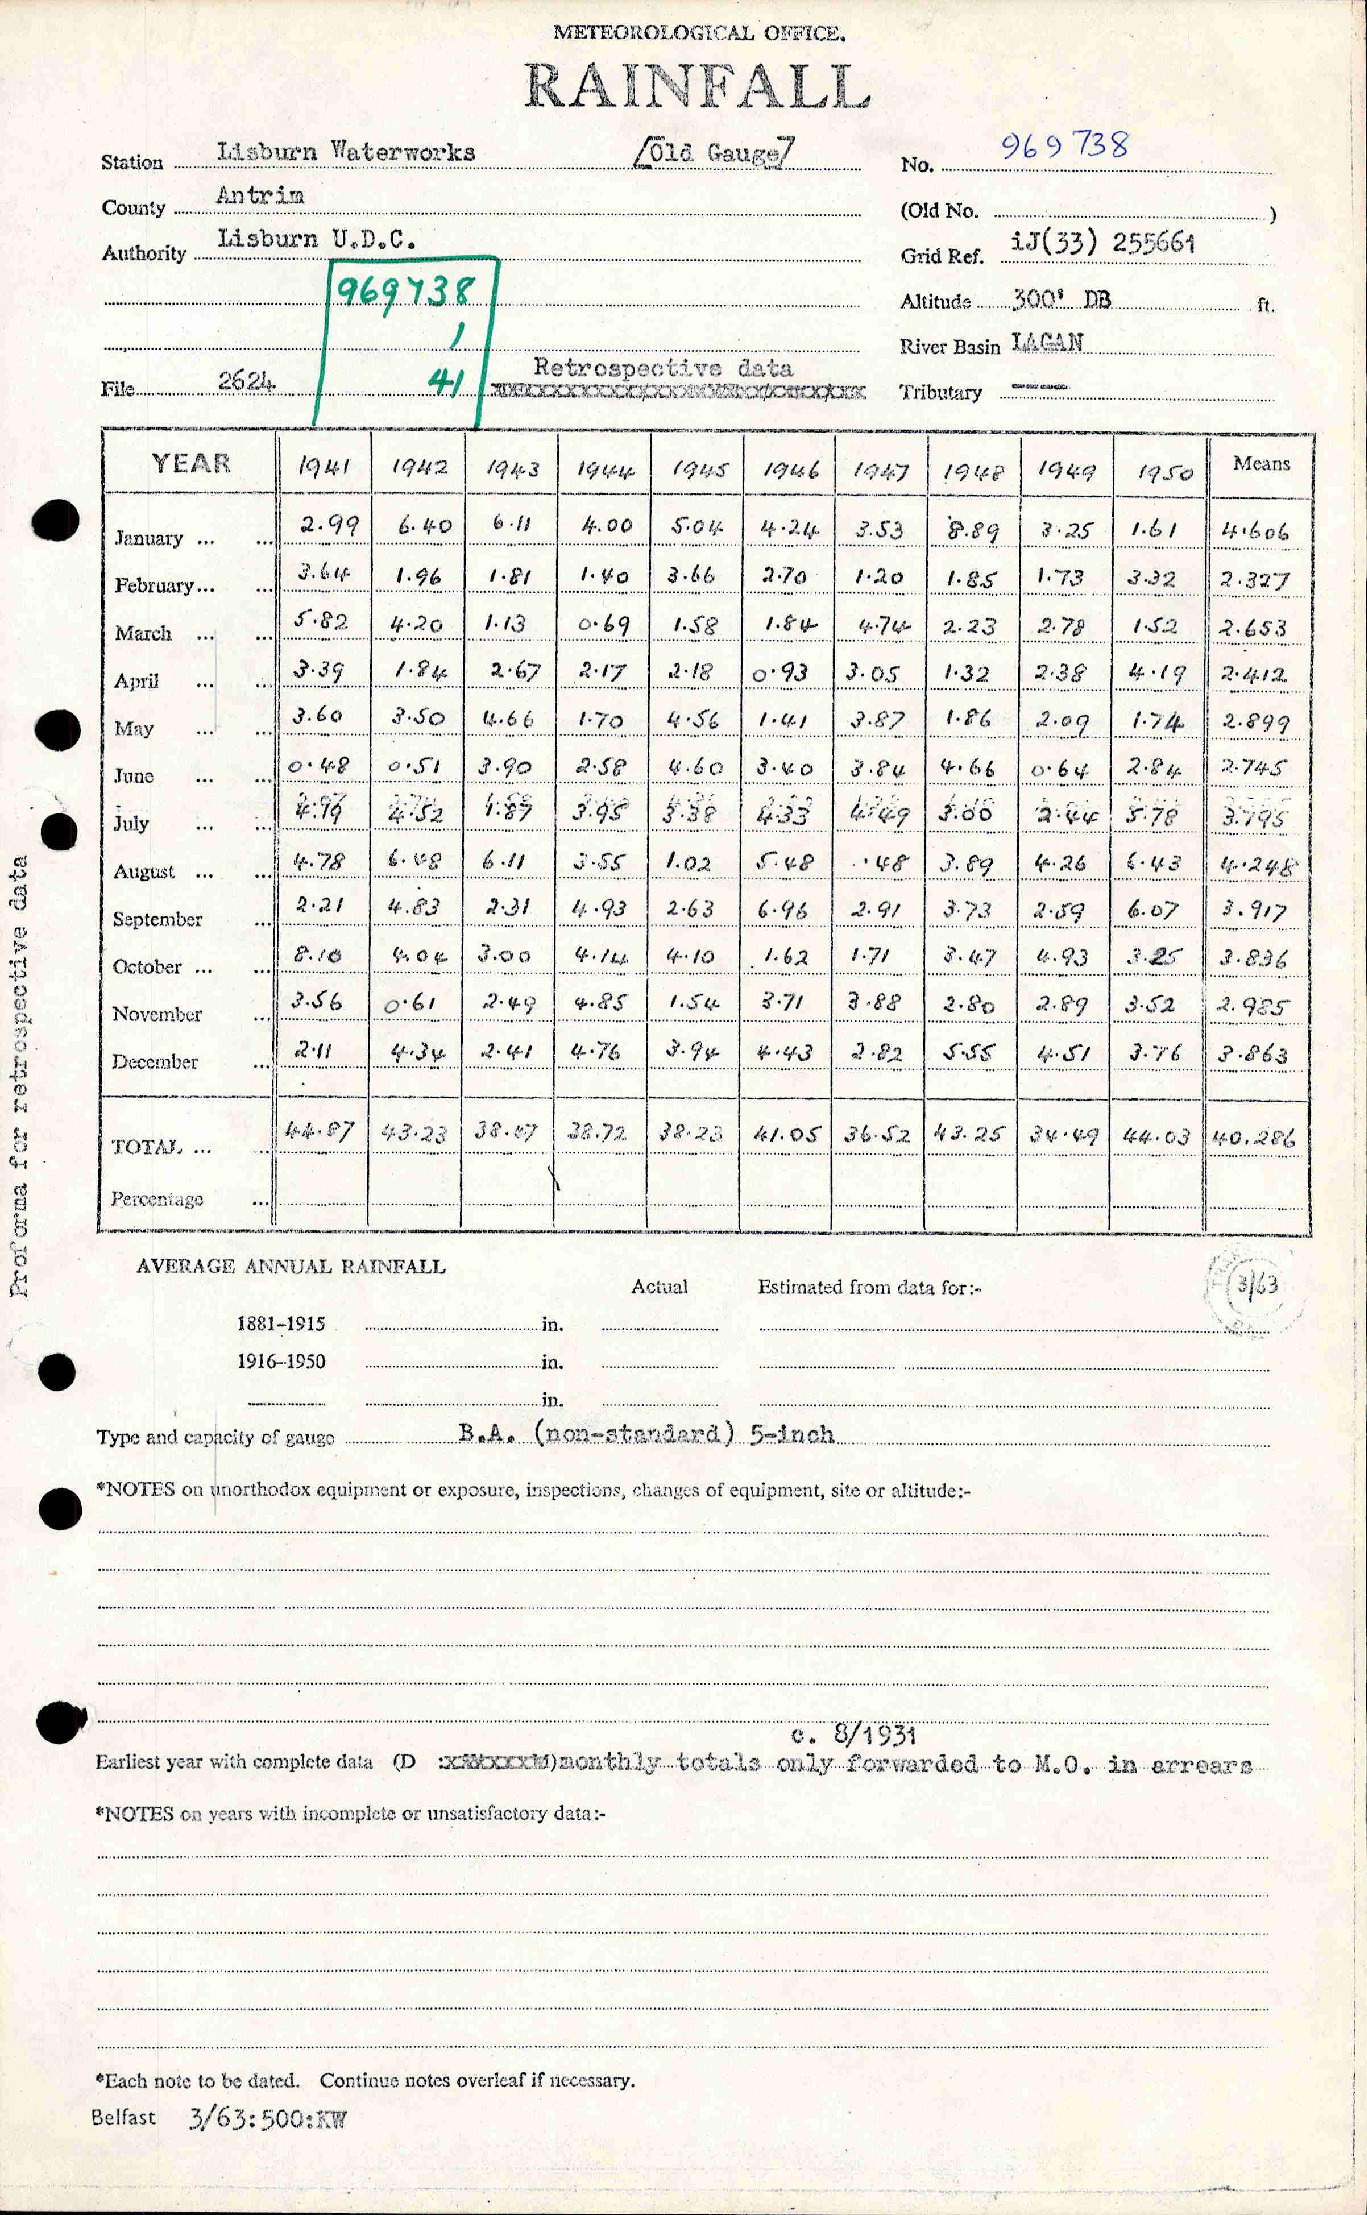 METEOROLOGICAL OFFICE.
RAINFALL
Station Lisburn Waterworks [Old Gauge] No. 969738
County Antrim (Old No. )
Authority Lisburn U.D.C. Grid Ref. iJ(33) 255661
969738 Altitude 300' DB ft.
1 River Basin LAGAN
File 2624 41 Retrospective data Tributary ----
YEAR 1941 1942 1943 1944 1945 1946 1947 1948 1949 1950 Means
January ... ... 2.99 6.40 6.11 4.00 5.04 4.24 3.53 8.89 3.25 1.61 4.606
February ... ... 3.64 1.96 1.81 1.40 3.66 2.70 1.20 1.85 1.73 3.32 2.327
March ... ... 5.82 4.20 1.13 0.69 1.58 1.84 4.74 2.23 2.78 1.52 2.653
April ... ... 3.39 1.84 2.67 2.17 2.18 0.93 3.05 1.32 2.38 4.19 2.412
May ... ... 3.60 3.50 4.66 1.70 4.56 1.41 3.87 1.86 2.09 1.74 2.899
June ... ... 0.48 0.51 3.90 2.58 4.60 3.40 3.84 4.66 0.64 2.84 2.745
July ... ... 4.19 4.52 1.87 3.95 3.38 4.33 4.49 3.00 2.44 5.78 3.795
August ... ... 4.78 6.48 6.11 3.55 1.02 5.48 .48 3.89 4.26 6.43 4.248
September ... 2.21 4.83 2.31 4.93 2.63 6.96 2.91 3.73 2.59 6.07 3.917
October ... ... 8.10 4.04 3.00 4.14 4.10 1.62 1.71 3.47 4.93 3.25 3.836
November ... 3.56 0.61 2.49 4.85 1.54 3.71 3.88 2.80 2.89 3.52 2.985
December ... 2.11 4.34 2.41 4.76 3.94 4.43 2.82 5.55 4.51 3.76 3.863
TOTAL ... ... 44.87 43.23 38.47 38.72 38.23 41.05 36.52 43.25 34.49 44.03 40.286
Percentage ...
Proforma for retrospective data
AVERAGE ANNUAL RAINFALL
Actual Estimated from data for:- 3/63
1881-1915 in.
1916-1950 in.
in.
Type and capacity of gauge B.A. (non-standard) 5-inch
*NOTES on unorthodox equipment or exposure, inspections, changes of equipment, site or altitude:-
c. 8/1931
Earliest year with complete data (D monthly totals only forwarded to M.O. in arrears
*NOTES on years with incomplete or unsatisfactory data:-
*Each note to be dated. Continue notes overleaf if necessary.
Belfast 3/63:500:KW